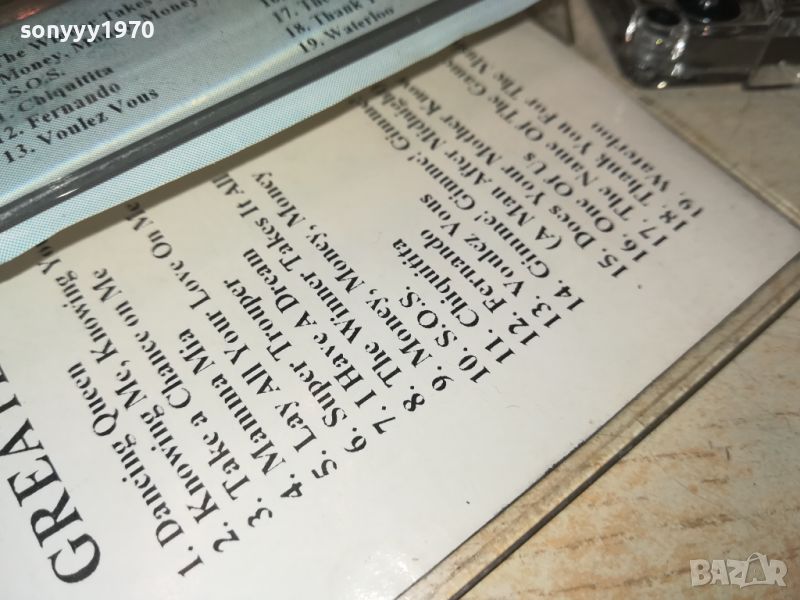 sonyyy1970
The W Takes
Money, M Money
S.O.S.
Chiquitita
12. Fernando
13. Voulez Vous
17. The
18. Thank
19. Waterloo
GREATE
1. Dancing Queen
2. Knowing Me, Knowing Yo
3. Take a Chance on Me
4. Mamma Mia
5. Lay All Your Love On Me
6. Super Trouper
7. I Have A Dream
8. The Winner Takes It All
9. Money, Money, Money
10. S.O.S.
11. Chiquitita
12. Fernando
13. Voulez Vous
14. Gimme! Gimme! Gimme!
(A Man After Midnight)
15. Does Your Mother Know
16. One Of Us
17. The Name Of The Game
18. Thank You For The Mus
19. Waterloo
BAZAR